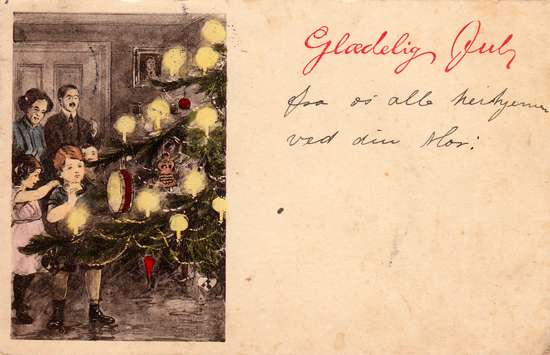 Glædelig Jul,
fra os alle herhjemme
ved din Mor: